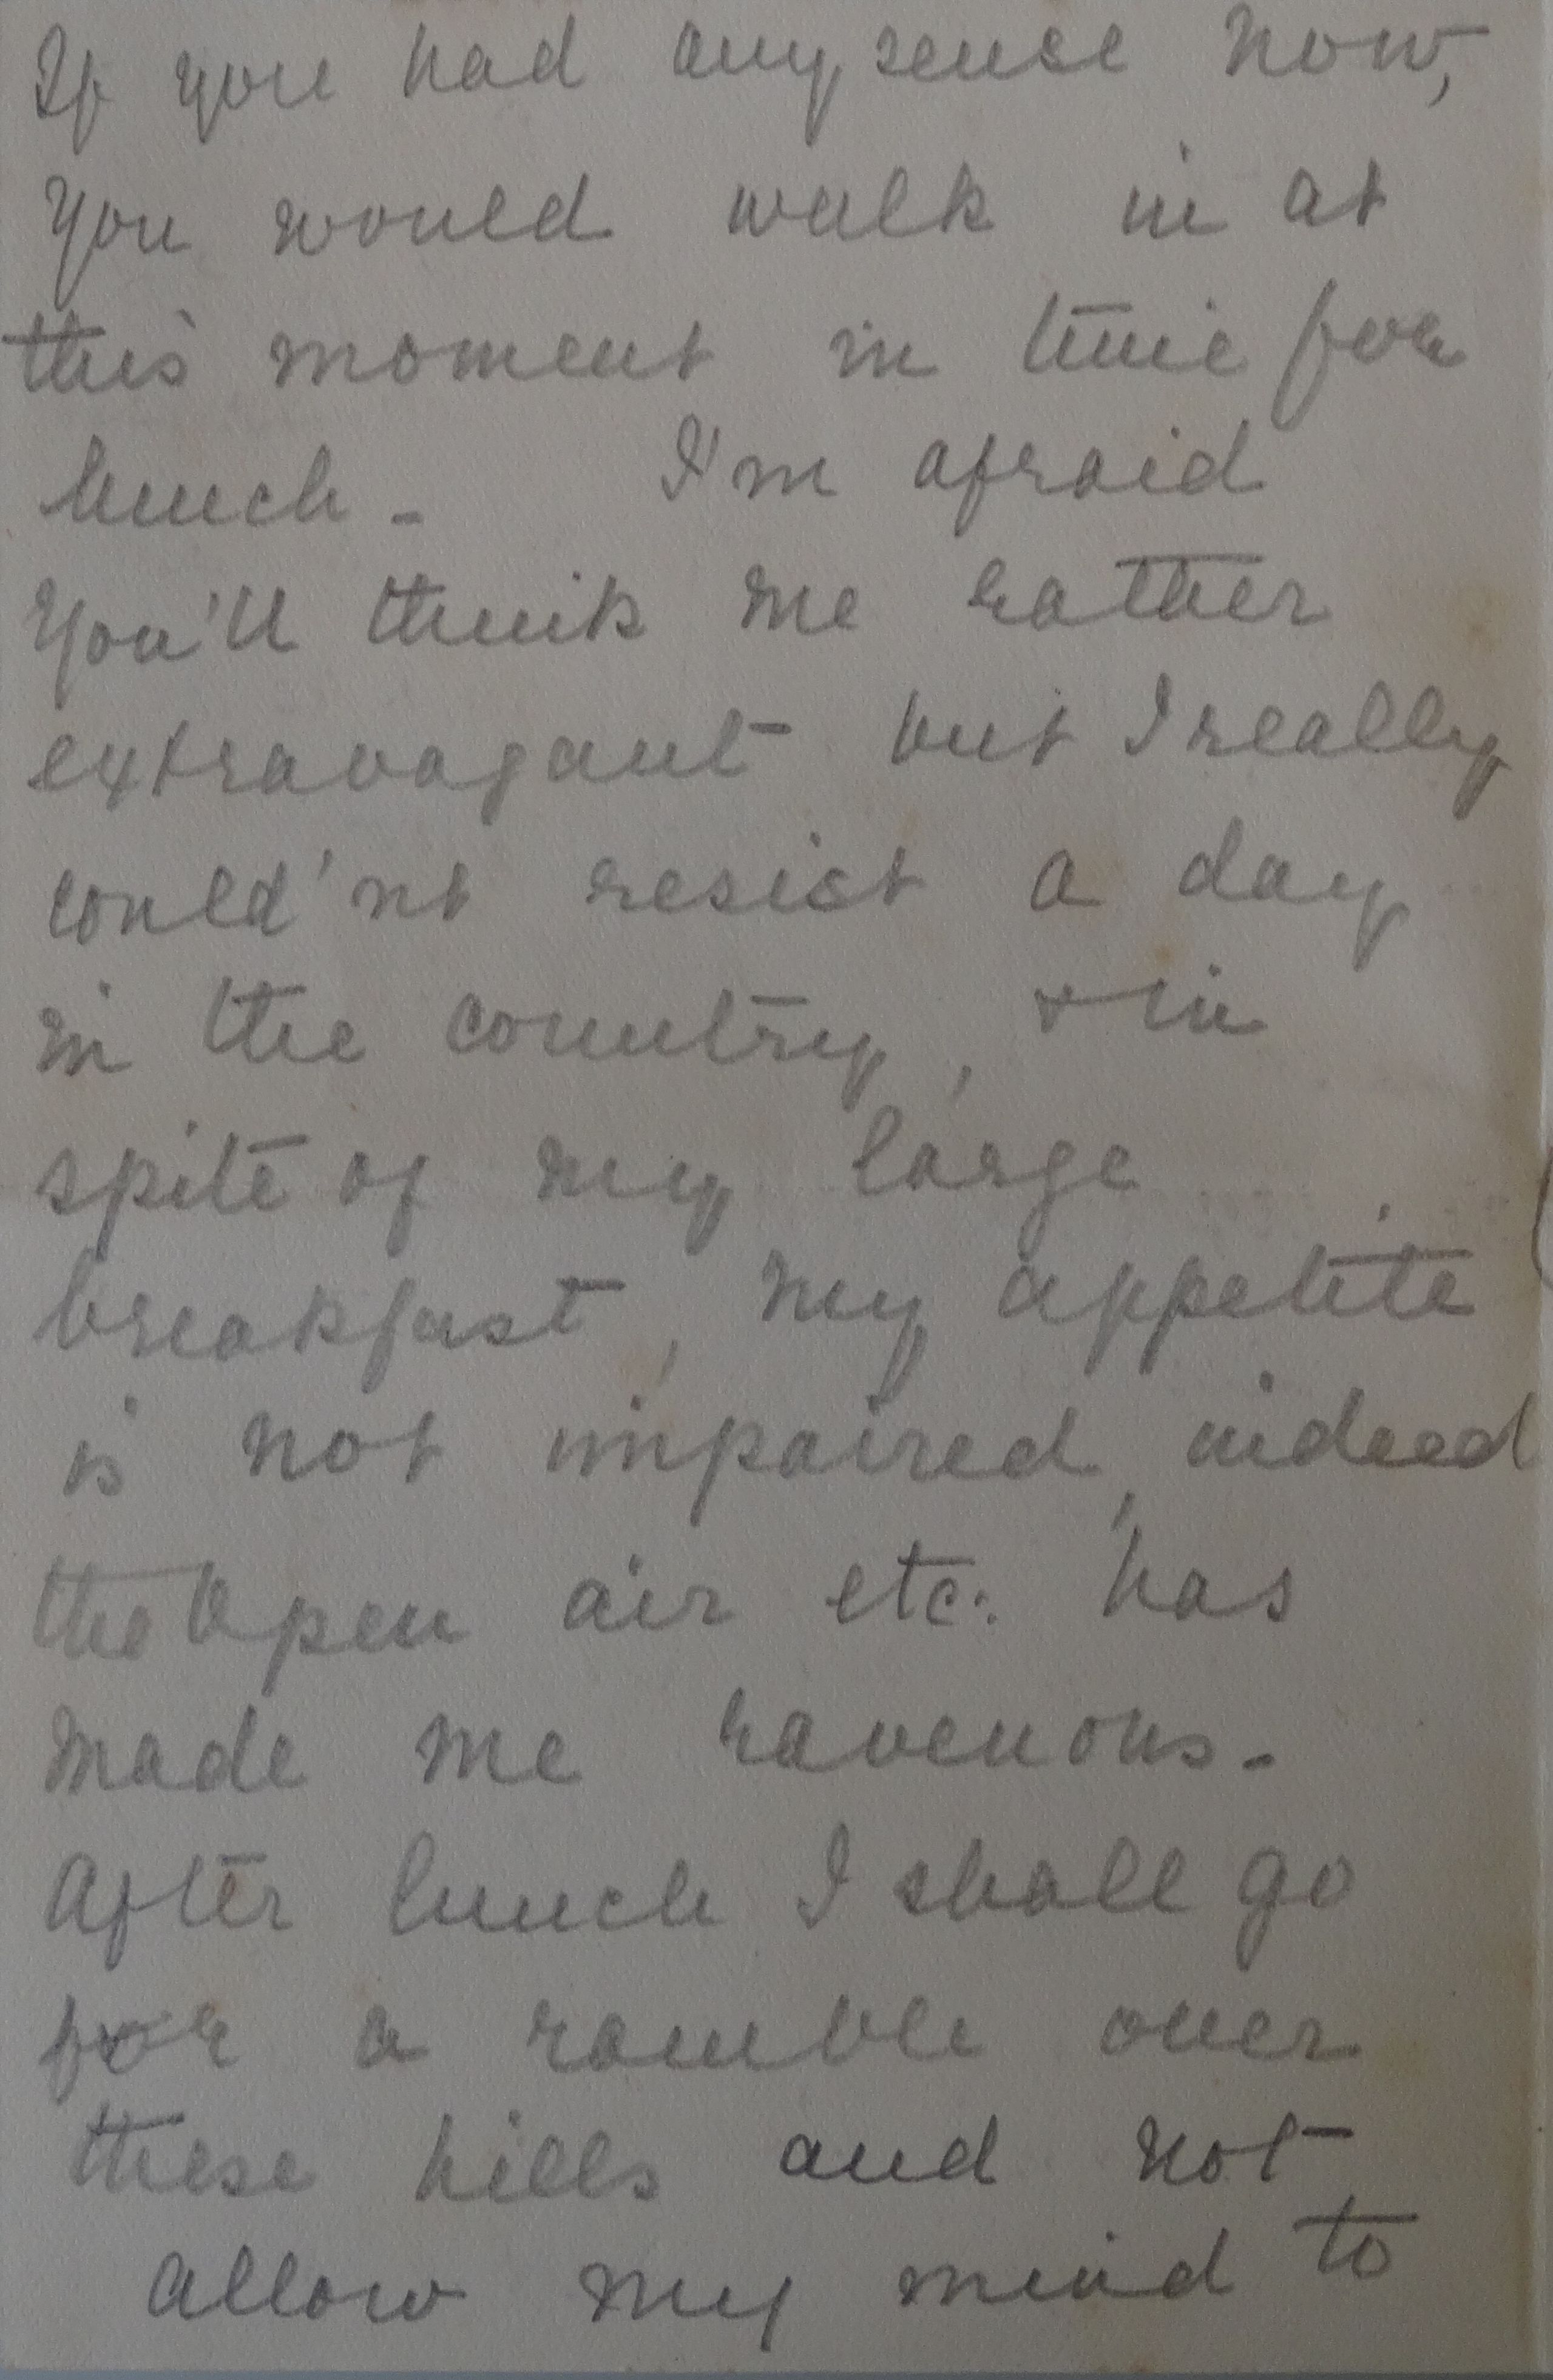 If you had any sense now,
you would walk in at
this moment in time for
lunch - I'm afraid
You'll think me rather
extravagant but I really
could'nt resist a day
in the country, & in
spite of my large
breakfast, my appetite
is not impaired, indeed
the open air etc: has
made me ravenous -
After lunch I shall go
for a ramble over
these hills and not
allow my mind to